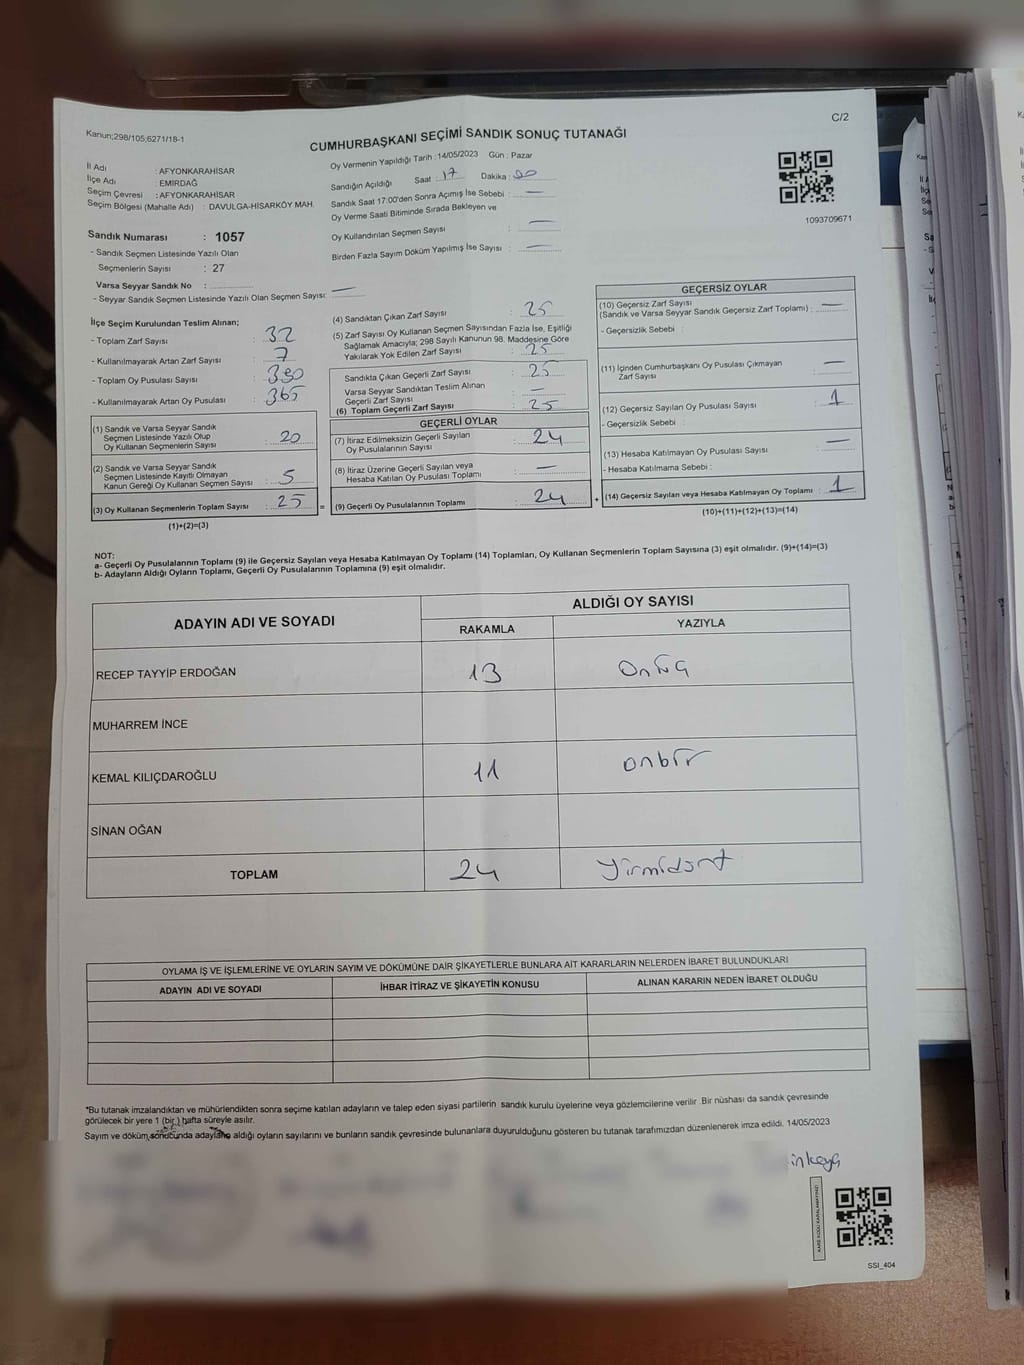 Kanun;298/105;6271/18-1
C/2
CUMHURBAŞKANI SEÇİMİ SANDIK SONUÇ TUTANAĞI
İl Adı : AFYONKARAHİSAR
İlçe Adı : EMİRDAĞ
Seçim Çevresi : AFYONKARAHİSAR
Seçim Bölgesi (Mahalle Adı) : DAVULGA-HİSARKÖY MAH.
Oy Vermenin Yapıldığı Tarih : 14/05/2023 Gün : Pazar
Sandığın Açıldığı Saat : 17 Dakika : 00
Sandık Saat 17:00'den Sonra Açımış İse Sebebi : —
Oy Verme Saati Bitiminde Sırada Bekleyen ve
Oy Kullandırılan Seçmen Sayısı : —
Birden Fazla Sayım Döküm Yapılmış İse Sayısı : —
1093709671
Sandık Numarası : 1057
- Sandık Seçmen Listesinde Yazılı Olan
Seçmenlerin Sayısı : 27
Varsa Seyyar Sandık No : —
- Seyyar Sandık Seçmen Listesinde Yazılı Olan Seçmen Sayısı:
İlçe Seçim Kurulundan Teslim Alınan;
- Toplam Zarf Sayısı : 32
- Kullanılmayarak Artan Zarf Sayısı : 7
- Toplam Oy Pusulası Sayısı : 390
- Kullanılmayarak Artan Oy Pusulası : 365
(1) Sandık ve Varsa Seyyar Sandık
Seçmen Listesinde Yazılı Olup
Oy Kullanan Seçmenlerin Sayısı : 20
(2) Sandık ve Varsa Seyyar Sandık
Seçmen Listesinde Kayıtlı Olmayan
Kanun Gereği Oy Kullanan Seçmen Sayısı : 5
(3) Oy Kullanan Seçmenlerin Toplam Sayısı : 25 =
(1)+(2)=(3)
(4) Sandıktan Çıkan Zarf Sayısı : 25
(5) Zarf Sayısı Oy Kullanan Seçmen Sayısından Fazla İse, Eşitliği
Sağlamak Amacıyla; 298 Sayılı Kanunun 98. Maddesine Göre
Yakılarak Yok Edilen Zarf Sayısı : 25
Sandıkta Çıkan Geçerli Zarf Sayısı : 25
Varsa Seyyar Sandıktan Teslim Alınan
Geçerli Zarf Sayısı : —
(6) Toplam Geçerli Zarf Sayısı : 25
GEÇERLİ OYLAR
(7) İtiraz Edilmeksizin Geçerli Sayılan
Oy Pusulalarının Sayısı : 24
(8) İtiraz Üzerine Geçerli Sayılan veya
Hesaba Katılan Oy Pusulası Toplamı : —
(9) Geçerli Oy Pusulalarının Toplamı : 24 +
GEÇERSİZ OYLAR
(10) Geçersiz Zarf Sayısı
(Sandık ve Varsa Seyyar Sandık Geçersiz Zarf Toplamı) : —
- Geçersizlik Sebebi :
(11) İçinden Cumhurbaşkanı Oy Pusulası Çıkmayan
Zarf Sayısı : —
(12) Geçersiz Sayılan Oy Pusulası Sayısı : 1
- Geçersizlik Sebebi :
(13) Hesaba Katılmayan Oy Pusulası Sayısı : —
- Hesaba Katılmama Sebebi :
(14) Geçersiz Sayılan veya Hesaba Katılmayan Oy Toplamı : 1
(10)+(11)+(12)+(13)=(14)
NOT:
a- Geçerli Oy Pusulalarının Toplamı (9) ile Geçersiz Sayılan veya Hesaba Katılmayan Oy Toplamı (14) Toplamları, Oy Kullanan Seçmenlerin Toplam Sayısına (3) eşit olmalıdır. (9)+(14)=(3)
b- Adayların Aldığı Oyların Toplamı, Geçerli Oy Pusulalarının Toplamına (9) eşit olmalıdır.
ADAYIN ADI VE SOYADI
ALDIĞI OY SAYISI
RAKAMLA YAZIYLA
RECEP TAYYİP ERDOĞAN 13 Onüç
MUHARREM İNCE
KEMAL KILIÇDAROĞLU 11 onbir
SİNAN OĞAN
TOPLAM 24 Yirmidört
OYLAMA İŞ VE İŞLEMLERİNE VE OYLARIN SAYIM VE DÖKÜMÜNE DAİR ŞİKAYETLERLE BUNLARA AİT KARARLARIN NELERDEN İBARET BULUNDUKLARI
ADAYIN ADI VE SOYADI İHBAR İTİRAZ VE ŞİKAYETİN KONUSU ALINAN KARARIN NEDEN İBARET OLDUĞU
*Bu tutanak imzalandıktan ve mühürlendikten sonra seçime katılan adayların ve talep eden siyasi partilerin sandık kurulu üyelerine veya gözlemcilerine verilir. Bir nüshası da sandık çevresinde
görülecek bir yere 1 (bir) hafta süreyle asılır.
Sayım ve döküm sonucunda adayların aldığı oyların sayılarını ve bunların sandık çevresinde bulunanlara duyurulduğunu gösteren bu tutanak tarafımızdan düzenlenerek imza edildi. 14/05/2023
KARE KODU KARALAMAYINIZ!
SSI_404